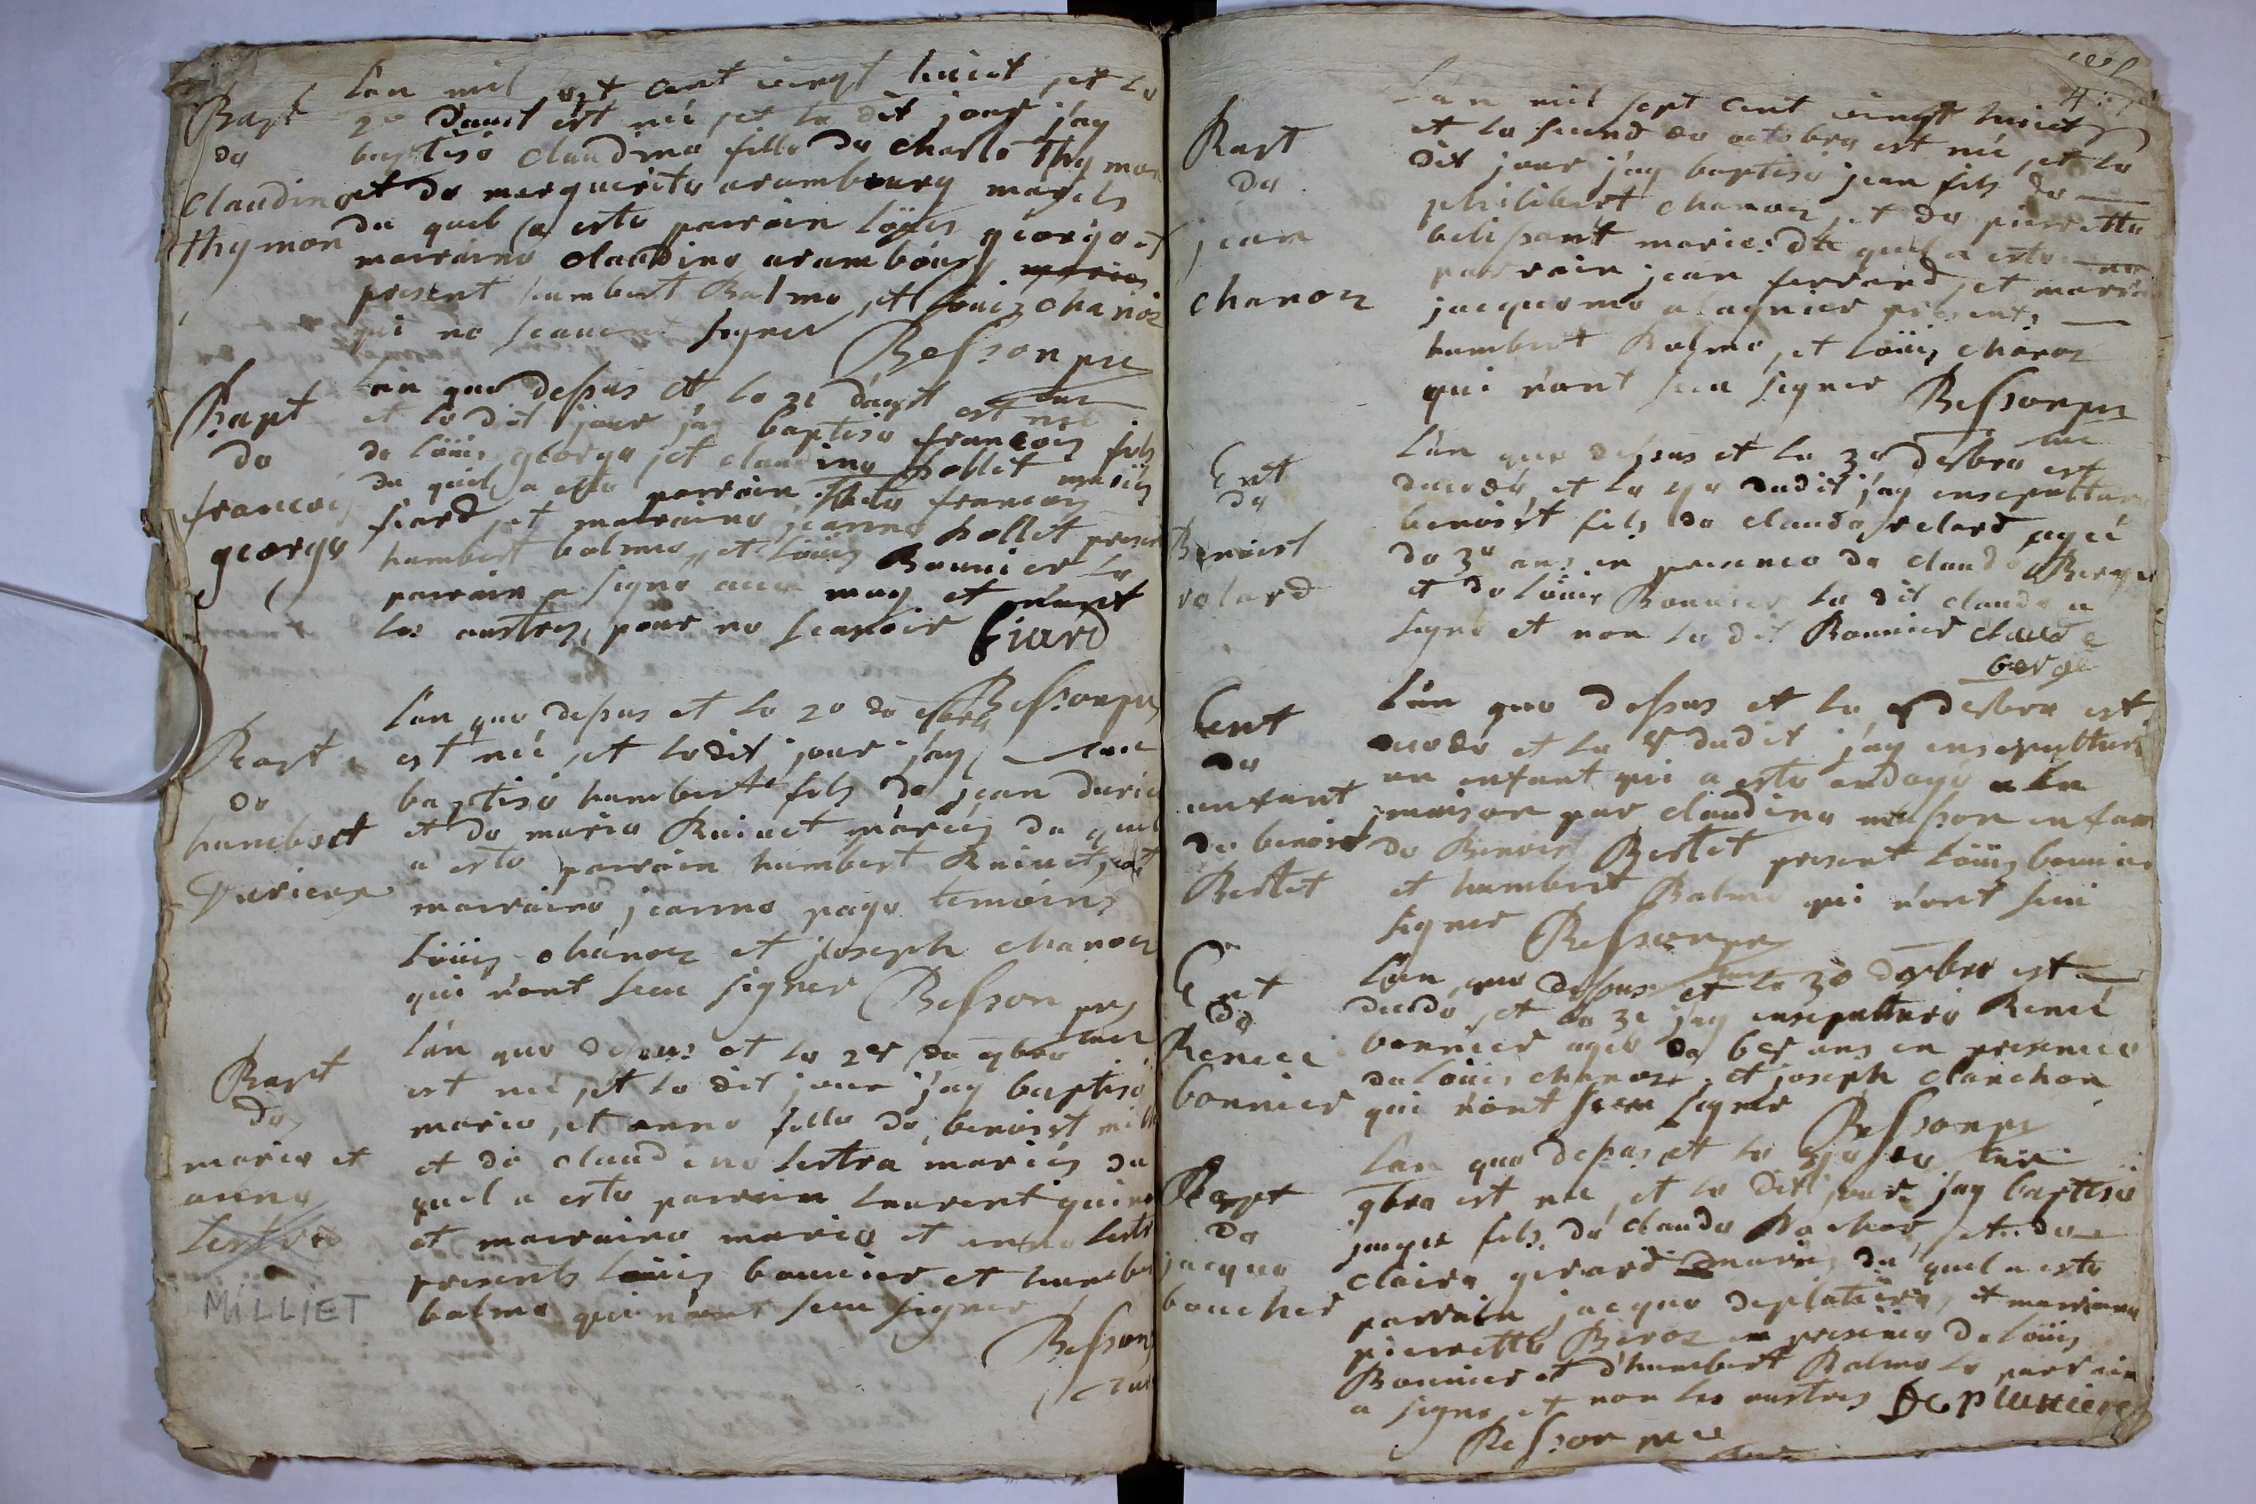 Bapt
de
Claudine
thymon
L'an mil sept cent vingt huict et le
2e d'aust est née et le dit jour j'ay
baptisé claudine fille de charle thymon
et de marguerite arambourg mariés
du quel a esté parrain Löuis george et
marraine claudine arambourg
present humbert Balme et Löuis chanoz
qui ne scauent signer
Besson pre
Bapt
de
francois
george
L'an que dessus et le 31 d'aust
et le dit jour j'ay est né
baptisé francois fils
de Löuis george et claudine pollet mariés
du quel a esté parrain francois
fiard et marraine jeanne pollet present
humbert balme et Löuis Bonnier le
parrain a signé auec moy et non
les austres pour ne scauoir fiard
Besson pre
Bapt
de
humbert
Durieux
L'an que dessus et le 20 de
est né et le dit jour j'ay
baptisé humbert fils de jean
et de marie Ruinet mariés du quel
a esté parrain humbert Ruinet et
marraine jeanne page temoins
Löuis chanoz et joseph chanoz
qui n'ont sceu signer Besson pre
Bapt
de
marie et
anne
MILLIET
L'an que dessus et le de
est né et le dit jour j'ay baptisé
marie et anne fille de benoist
et de claudine lestra mariés du
quel a esté parrain laurent
et marraine marie et anne
presents Löuis bonnier et humbert
balme qui n'ont sceu signer
Besson
4
Bapt
de
jean
chanoz
L'an mil sept cent vingt huict
et le second de octobre est né et le
dit jour j'ay baptisé jean fils de
philibert chanoz et de pierrette
belissant mariés du quel a esté
parrain jean ferrand et marraine
jacquema alagnier presents
humbert Balme et Löuis chanoz
qui n'ont sceu signer Besson pre
Ent
de
Benoist
relard
L'an que dessus et le est
decedé et le dudit j'ay ensepulturé
benoist fils de claude relard agé
de ans en presence de claude Berge
et de Löuis Bonnier le dit claude a
signé et non le dit Bonnier claude
berge
Ent
de
enfant
de benoist
Bertet
L'an que dessus et le est
decedé et le dudit j'ay ensepulturé
un enfant qui a esté a la
maison par claudine masson enfant
de Benoist Bertet present Löuis bonnier
et humbert Balme qui n'ont sceu
signer Besson pre
Ent
de
Renée
bonnier
L'an que dessus et le 30 est
decedé et le 31 j'ay ensepulturé René
bonnier agé de ans en presence
de Löuis chanoz et joseph clanchon
qui n'ont sceu signer
Besson pre
Bapt
de
jacque
boucher
L'an que dessus et le
9bre est né et le dit jour j'ay baptisé
jacque fils de claude Boucher et de
claire gerard mariés du quel a esté
parrain jacque deplatiere et marraine
pierrette Beroz en presence de Löuis
Bonnier et d'humbert Balme le parrain
a signé et non les austres
Besson pre